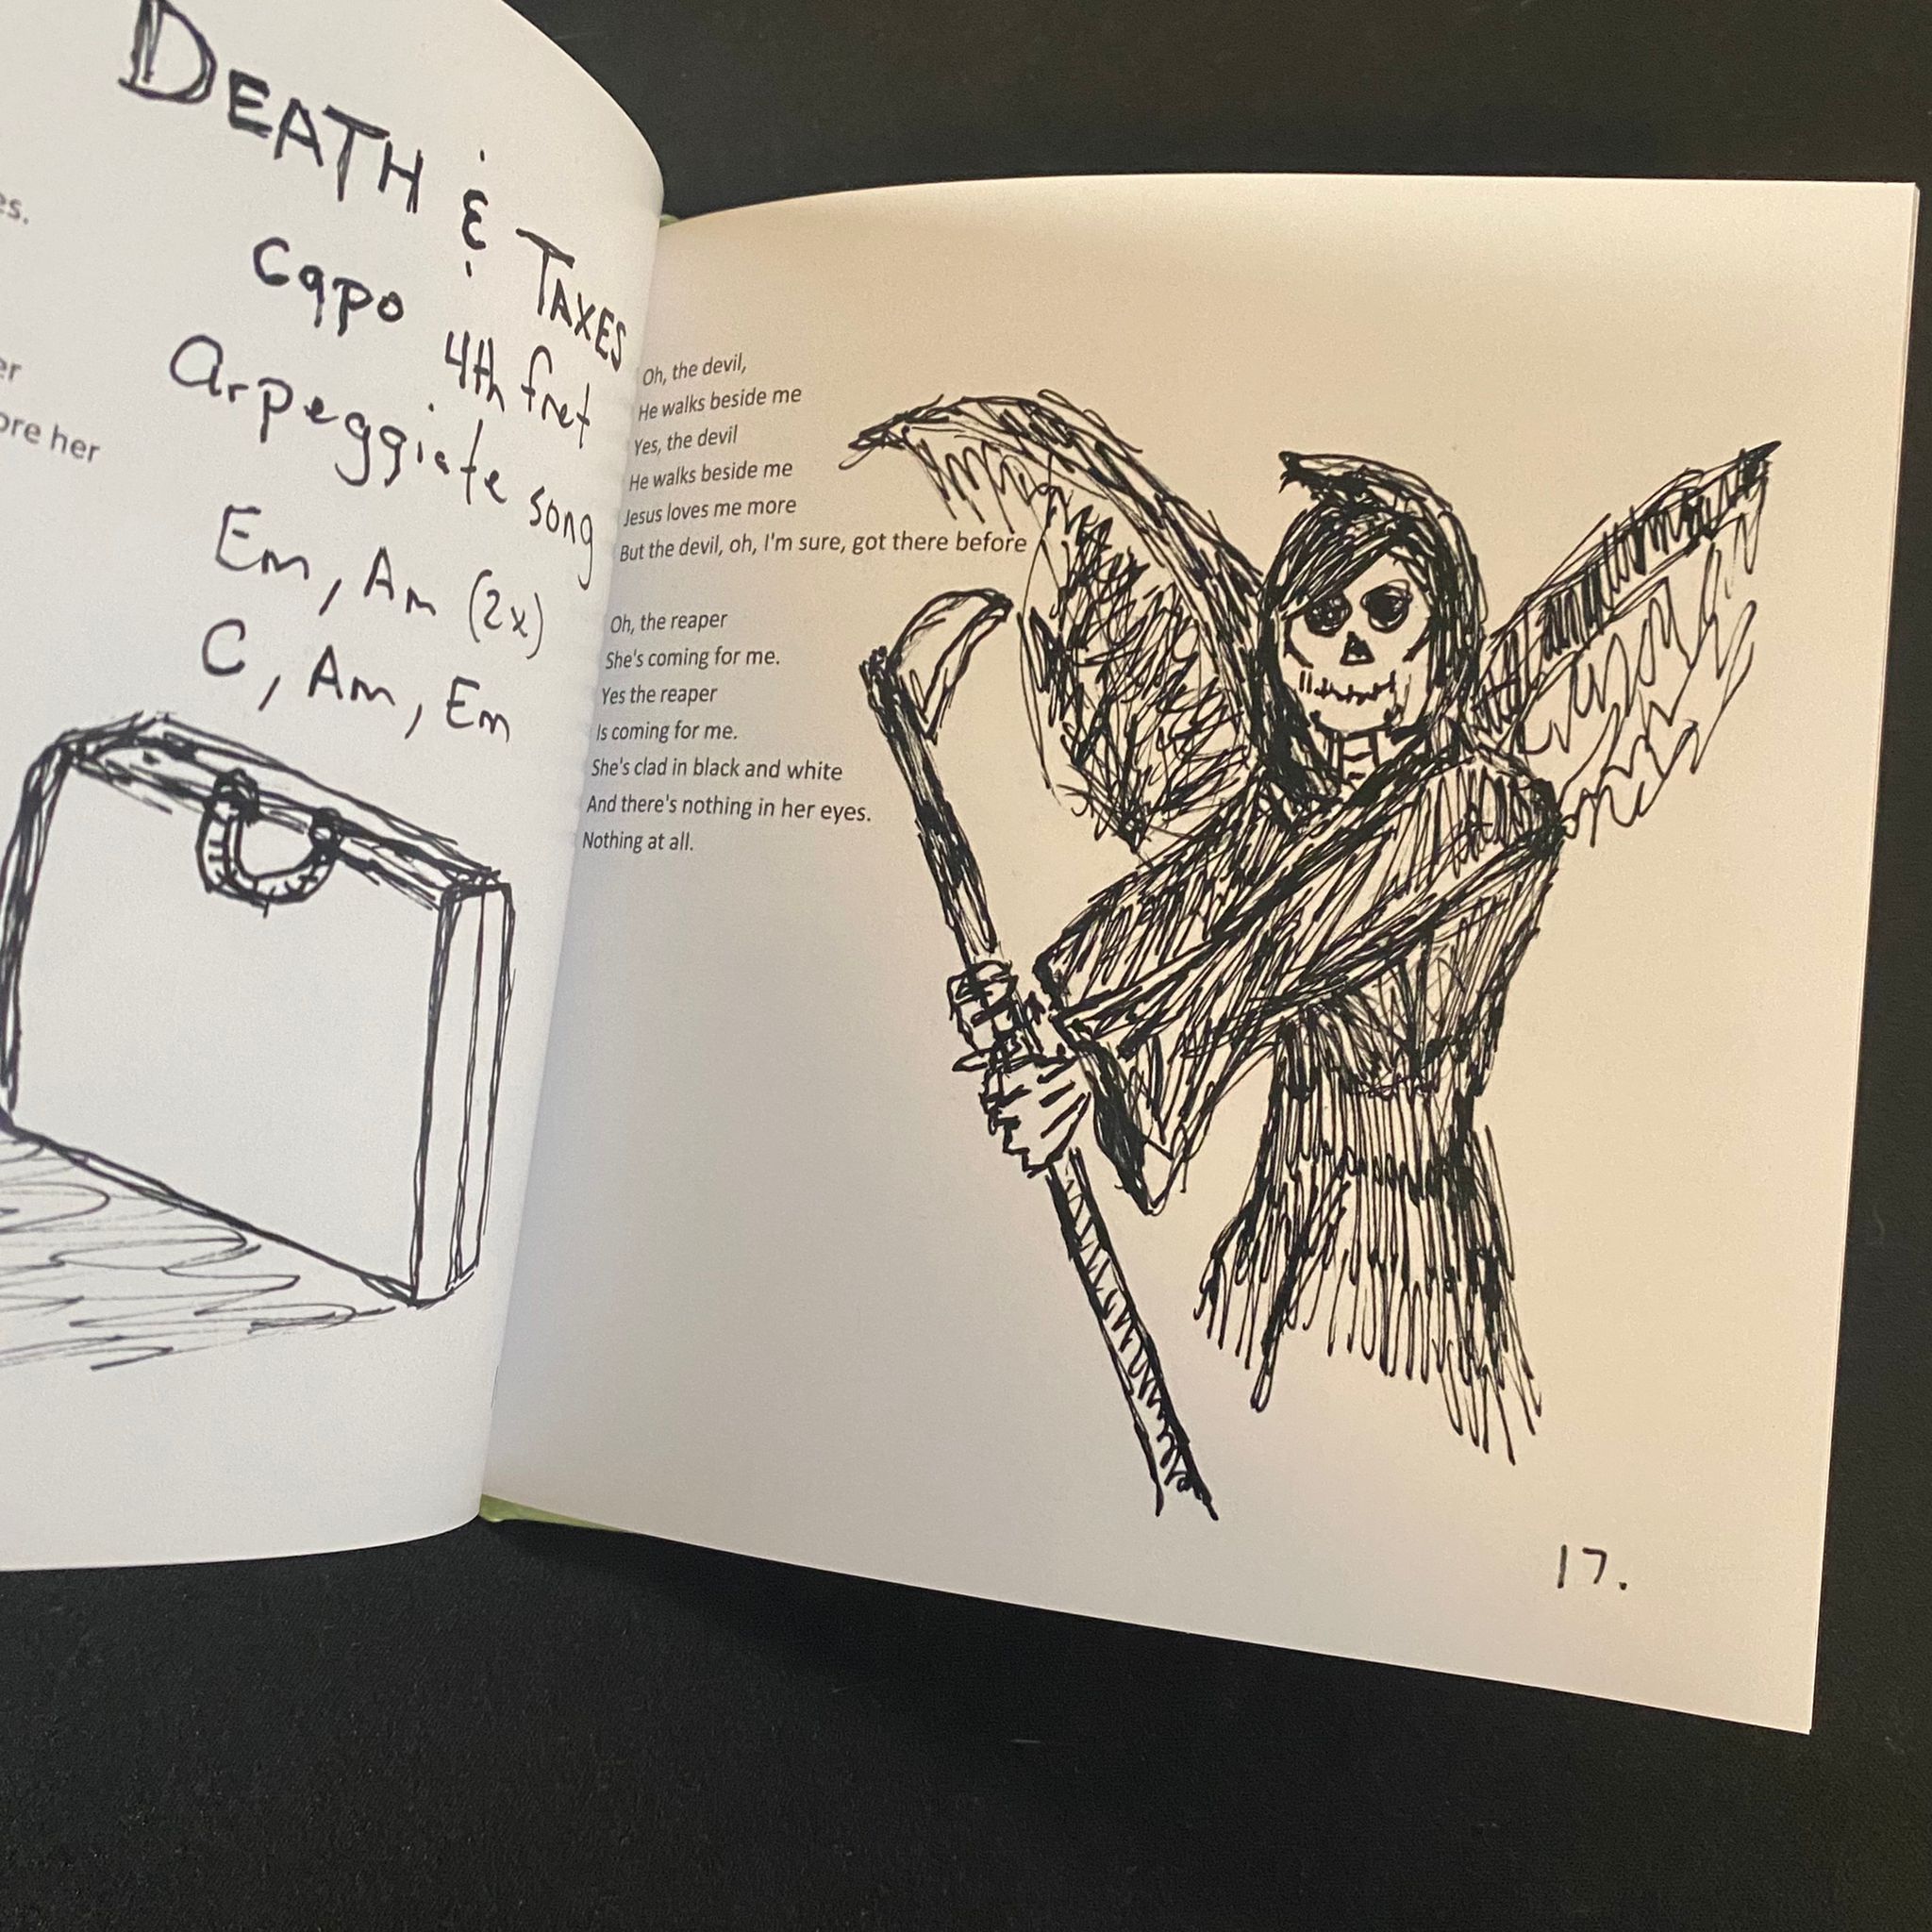 es.
er
ore her
DEATH & TAXES
Capo 4th fret
Arpeggiate song
Em, Am (2x)
C, Am, Em
Oh, the devil,
He walks beside me
Yes, the devil
He walks beside me
Jesus loves me more
But the devil, oh, I'm sure, got there before
Oh, the reaper
She's coming for me.
Yes the reaper
Is coming for me.
She's clad in black and white
And there's nothing in her eyes.
Nothing at all.
17.